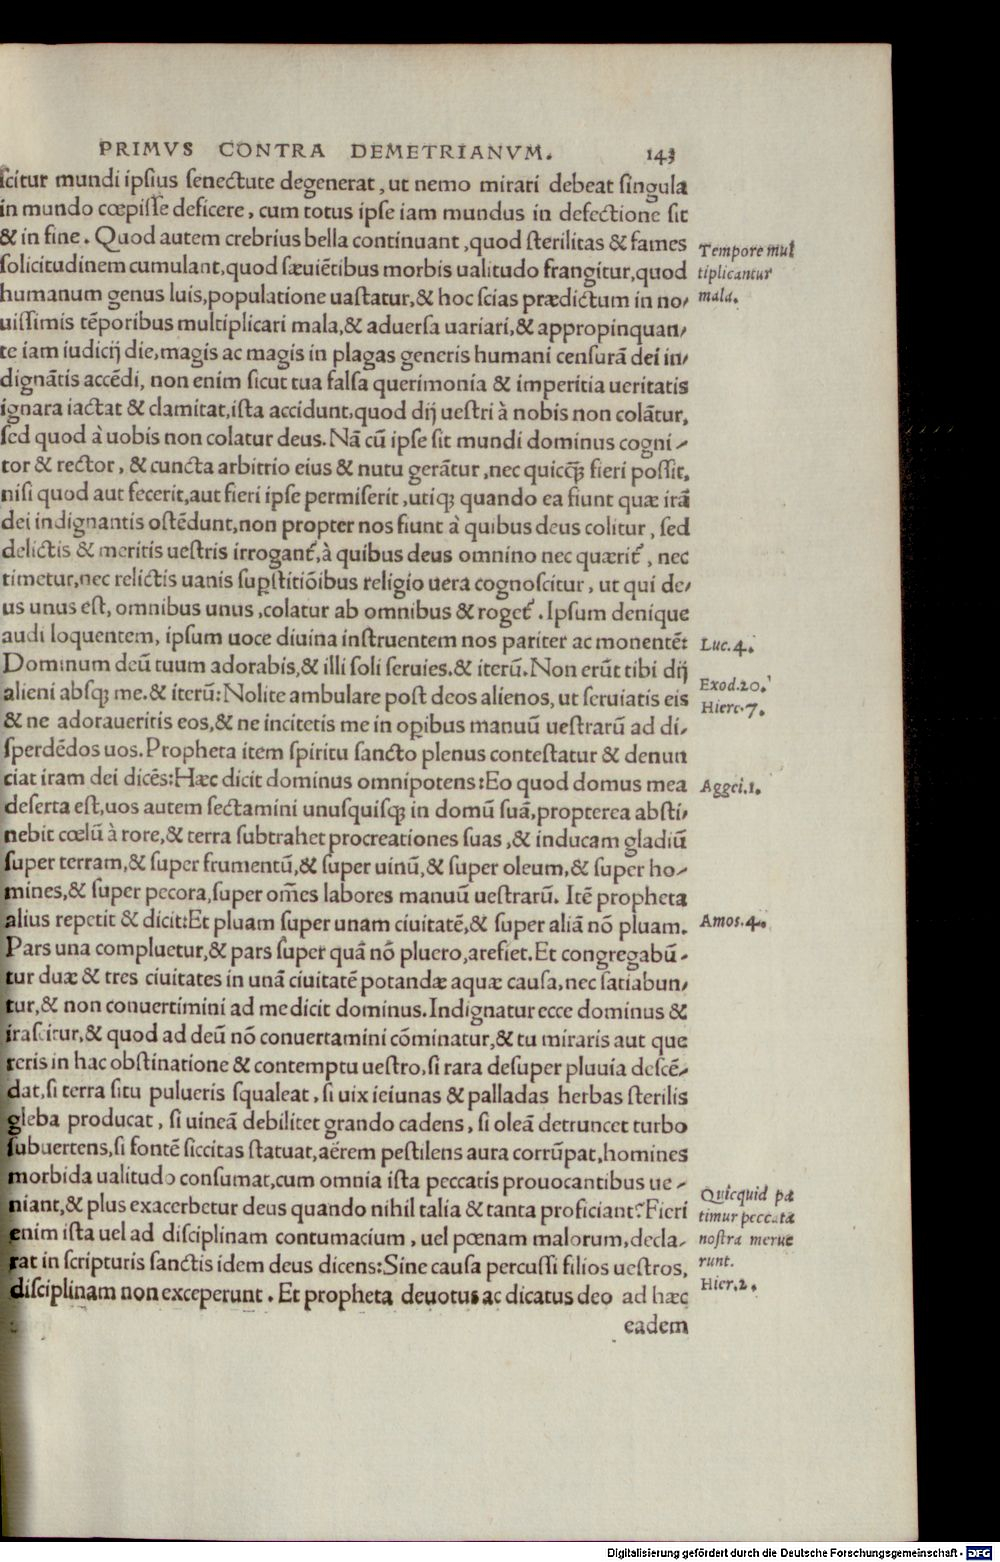 PRIMVS CONTRA DEMETRIANVM. 143
ſcitur mundi ipſius ſenectute degenerat, ut nemo mirari debeat ſingula
in mundo cœpiſſe deficere, cum totus ipſe iam mundus in defectione ſit
& in fine. Quod autem crebrius bella continuant, quod ſterilitas & fames
ſolicitudinem cumulant, quod ſæuiẽtibus morbis ualitudo frangitur, quod
humanum genus luis, populatione uaſtatur, & hoc ſcias prædictum in no-
uiſſimis tẽporibus multiplicari mala, & aduerſa uariari, & appropinquan-
te iam iudicij die, magis ac magis in plagas generis humani cenſurã dei in-
dignãtis accẽdi, non enim ſicut tua falſa querimonia & imperitia ueritatis
ignara iactat & clamitat, iſta accidunt, quod dij ueſtri à nobis non colãtur,
ſed quod à uobis non colatur deus. Nã cũ ipſe ſit mundi dominus cogni-
tor & rector, & cuncta arbitrio eius & nutu gerãtur, nec quicꝗ̃ fieri poſſit,
niſi quod aut fecerit, aut fieri ipſe permiſerit, utiqꝫ quando ea fiunt quæ irã
dei indignantis oſtẽdunt, non propter nos fiunt à quibus deus colitur, ſed
delictis & meritis ueſtris irrogant᷑, à quibus deus omnino nec quærit᷑, nec
timetur, nec relictis uanis ſuꝑſtitiõibus religio uera cognoſcitur, ut qui de-
us unus eſt, omnibus unus, colatur ab omnibus & roget᷑. Ipſum denique
audi loquentem, ipſum uoce diuina inſtruentem nos pariter ac monentẽ:
Dominum deũ tuum adorabis, & illi ſoli ſeruies. & iterũ. Non erũt tibi dij
alieni abſqꝫ me. & iterũ: Nolite ambulare poſt deos alienos, ut ſeruiatis eis
& ne adoraueritis eos, & ne incitetis me in oꝑibus manuũ ueſtrarũ ad di-
ſperdẽdos uos. Propheta item ſpiritu ſancto plenus conteſtatur & denun
ciat iram dei dicẽs: Hæc dicit dominus omnipotens: Eo quod domus mea
deſerta eſt, uos autem ſectamini unuſquiſqꝫ in domũ ſuã, propterea abſti-
nebit cœlũ à rore, & terra ſubtrahet procreationes ſuas, & inducam gladiũ
ſuper terram, & ſuper frumentũ, & ſuper uinũ, & ſuper oleum, & ſuper ho-
mines, & ſuper pecora, ſuper om̃es labores manuũ ueſtrarũ. Itẽ propheta
alius repetit & dicit: Et pluam ſuper unam ciuitatẽ, & ſuper aliã nõ pluam.
Pars una compluetur, & pars ſuper quã nõ pluero, arefiet. Et congregabũ-
tur duæ & tres ciuitates in unã ciuitatẽ potandæ aquæ cauſa, nec ſatiabun-
tur, & non conuertimini ad me dicit dominus. Indignatur ecce dominus &
iraſcitur, & quod ad deũ nõ conuertamini cõminatur, & tu miraris aut que
reris in hac obſtinatione & contemptu ueſtro, ſi rara deſuper pluuia deſcẽ-
dat, ſi terra ſitu pulueris ſqualeat, ſi uix ieiunas & palladas herbas ſterilis
gleba producat, ſi uineã debilitet grando cadens, ſi oleã detruncet turbo
ſubuertens, ſi fontẽ ſiccitas ſtatuat, aërem peſtilens aura corrũpat, homines
morbida ualitudo conſumat, cum omnia iſta peccatis prouocantibus ue-
niant, & plus exacerbetur deus quando nihil talia & tanta proficiant? Fieri
enim iſta uel ad diſciplinam contumacium, uel pœnam malorum, decla-
rat in ſcripturis ſanctis idem deus dicens: Sine cauſa percuſſi filios ueſtros,
diſciplinam non exceperunt. Et propheta deuotus ac dicatus deo ad hæc
eadem
Tempore mul
tiplicantur
mala.
Luc. 4.
Exod. 20.
Hiere. 7.
Aggei. 1.
Amos. 4.
Quicquid pa
timur peccata
noſtra merue
runt.
Hier. 2.
Digitalisierung gefördert durch die Deutsche Forschungsgemeinschaft - DFG